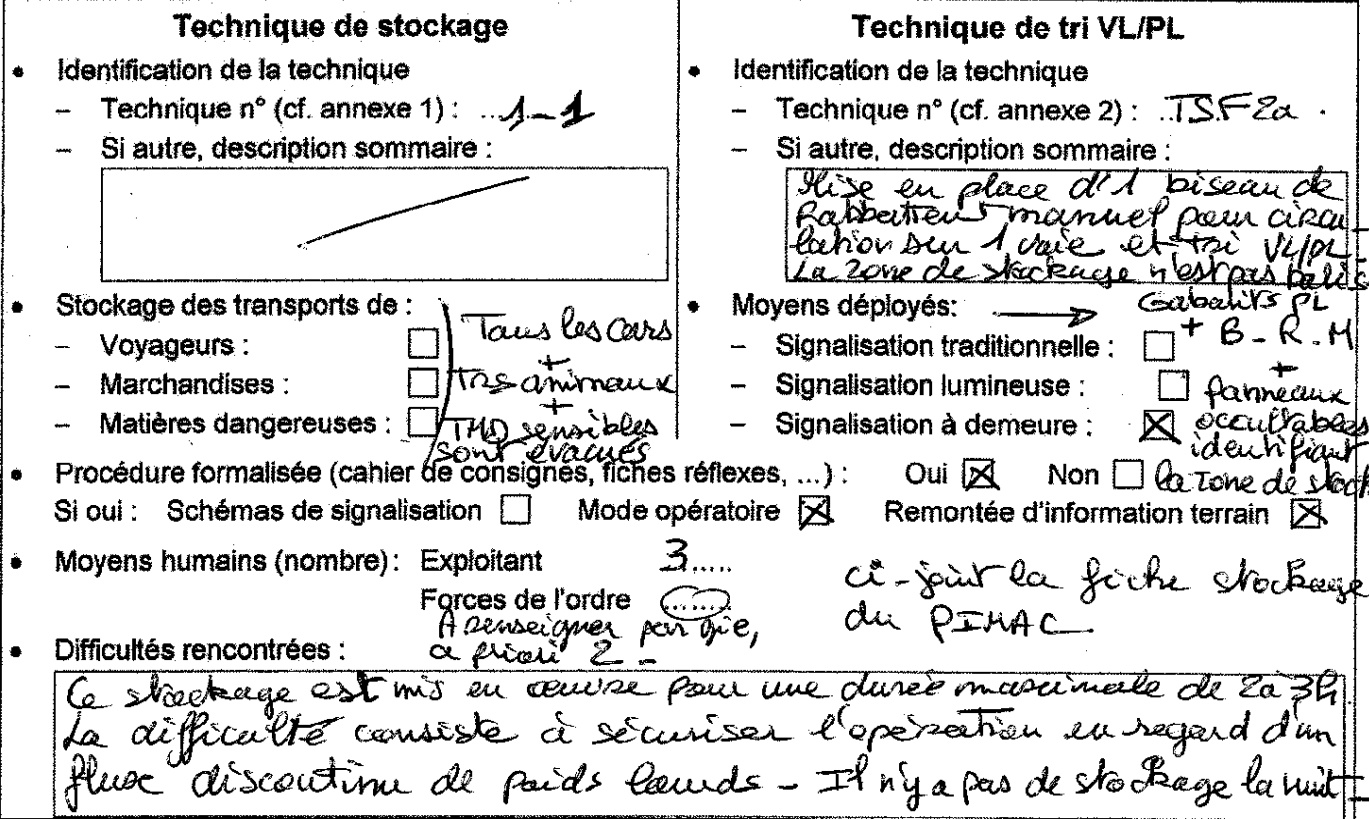 Technique de stockage
• Identification de la technique
– Technique n° (cf. annexe 1) : ...1-1
– Si autre, description sommaire :
• Stockage des transports de :
– Voyageurs : ☐ Tous les cars
+
– Marchandises : ☐ TRS animaux
+
– Matières dangereuses : ☐ TMD sensibles
sont évacués
Technique de tri VL/PL
• Identification de la technique
– Technique n° (cf. annexe 2) : ..TSF2a .
– Si autre, description sommaire :
Mise en place d'1 biseau de
Rabbattement manuel pour circu
lation sur 1 voie et tri VL/PL
La zone de stockage n'est pas balis
• Moyens déployés: → Gabarits PL
– Signalisation traditionnelle : ☐ + B-R.M
+
– Signalisation lumineuse : ☐ panneaux
– Signalisation à demeure : ☒ occultables
identifiant
la zone de stock
• Procédure formalisée (cahier de consignes, fiches réflexes, ...) : Oui ☒ Non ☐
Si oui : Schémas de signalisation ☐ Mode opératoire ☒ Remontée d'information terrain ☒
• Moyens humains (nombre) : Exploitant 3.....
Forces de l'ordre .......
A renseigner par gie,
a priori 2 -
ci-joint la fiche stockage
du PIMAC.
• Difficultés rencontrées :
Ce stockage est mis en oeuvre pour une durée maximale de 2 à 3h
La difficulté consiste à sécuriser l'opération en regard d'un
flux discontinu de poids lourds - Il n'y a pas de stockage la nuit